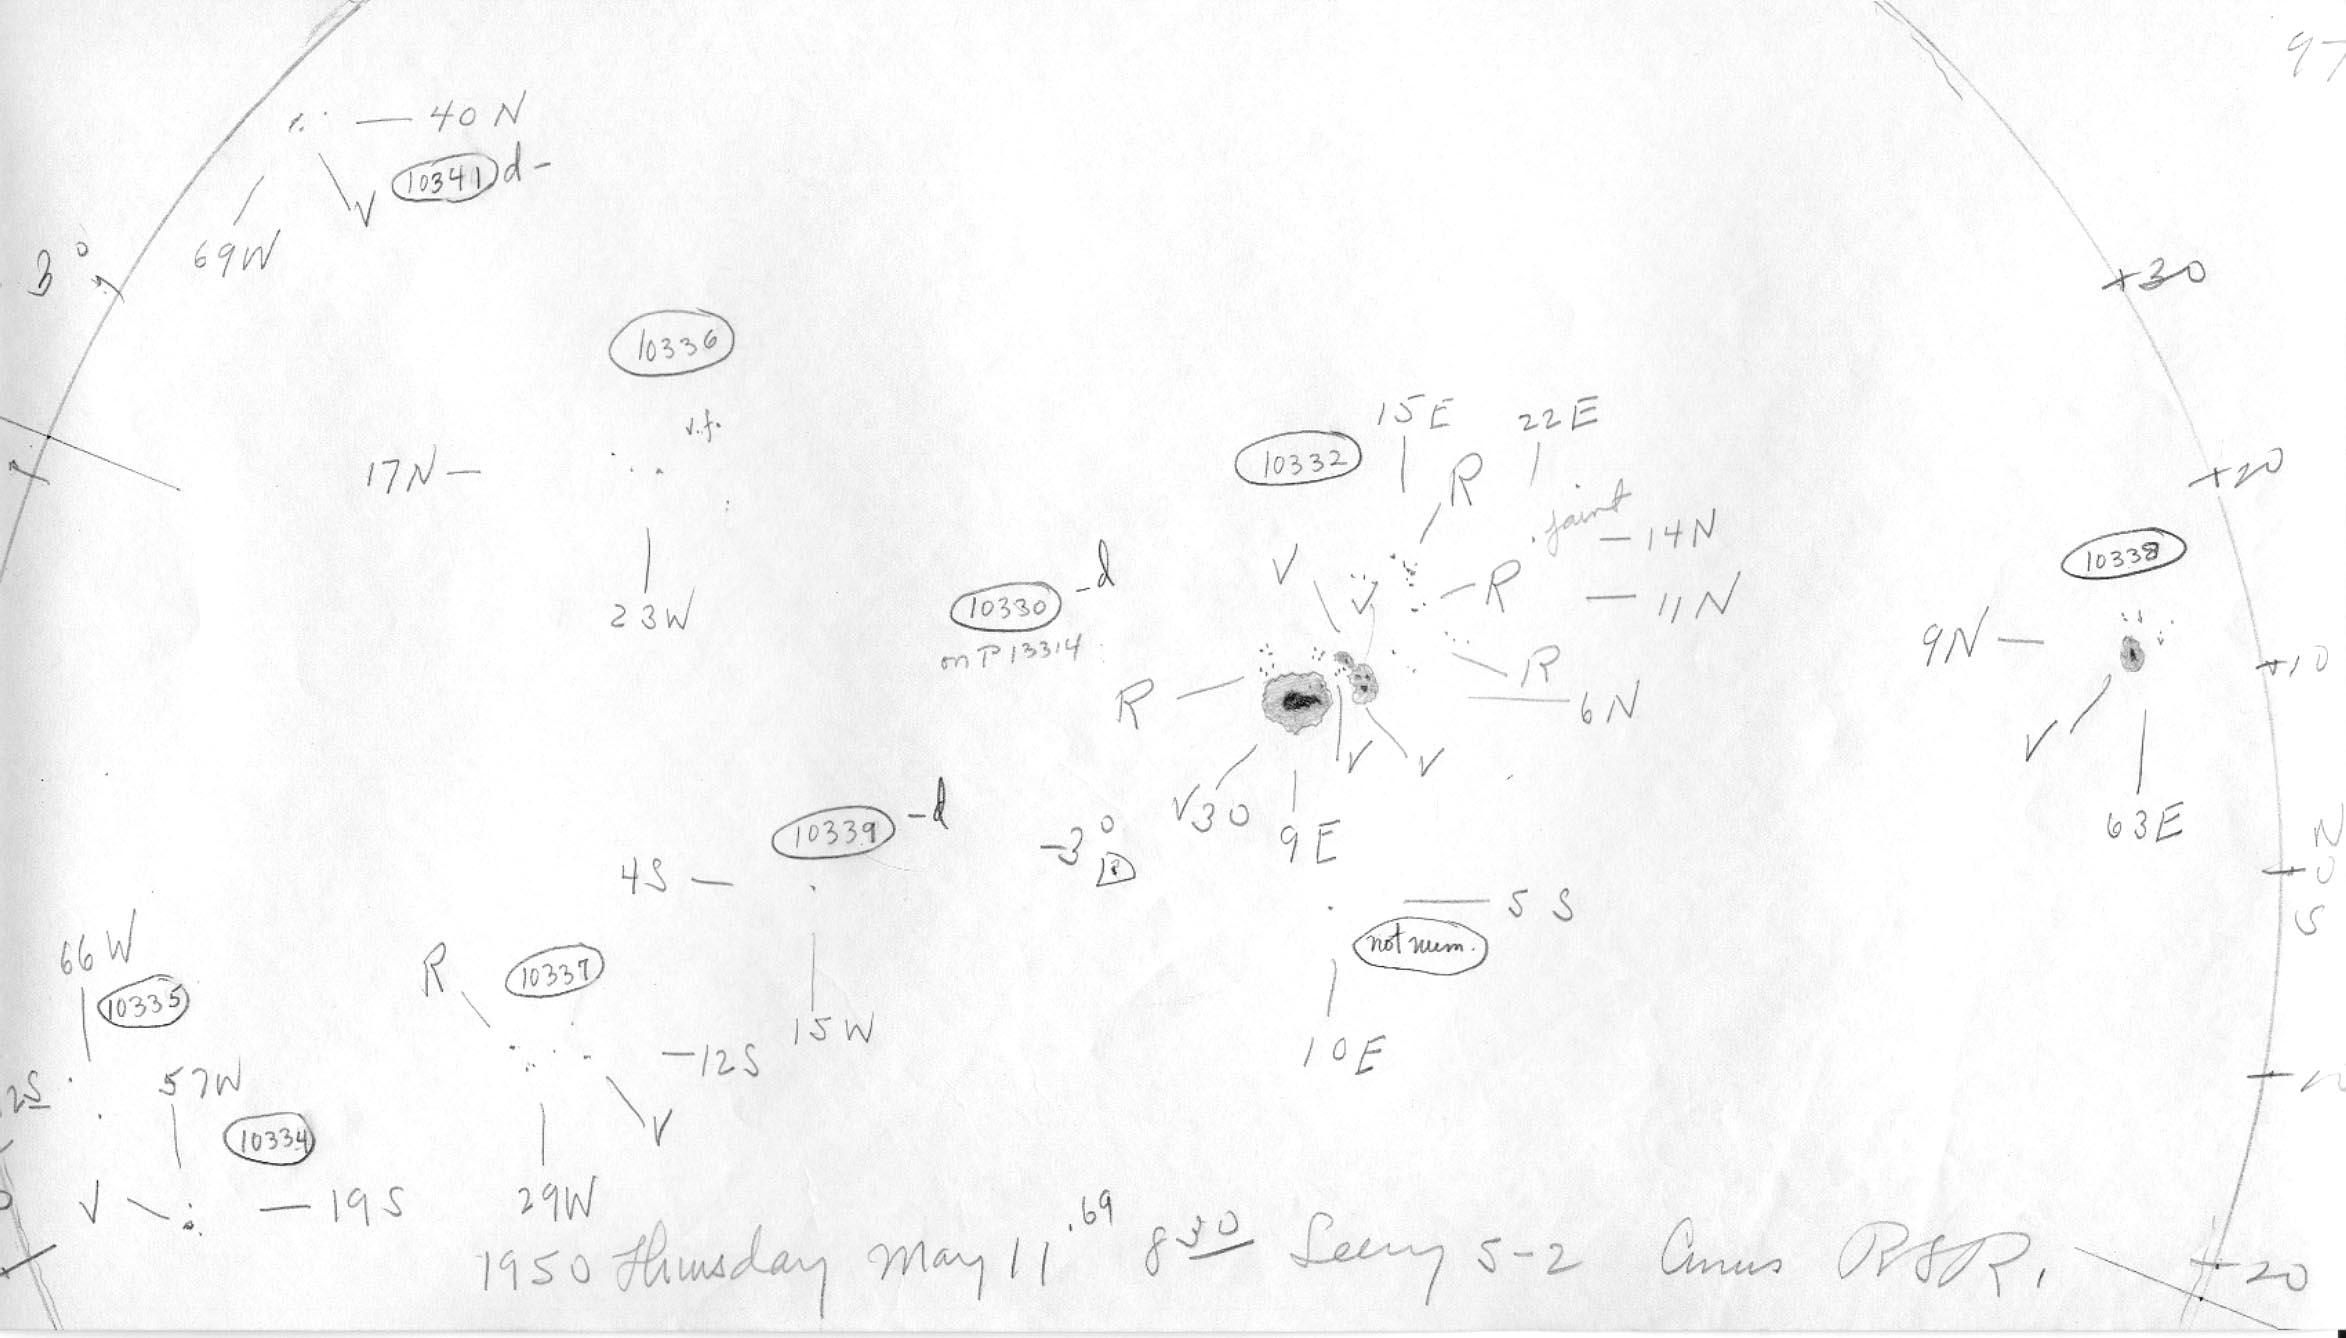 97
40 N
10341 d -
V
69W
3°
+30
10336
v.f.
17N
23W
15 E
22 E
10332
R
+20
faint
14N
10338
10330 -d
on P 13314
V
V
R
11N
9N
+10
R
R
6N
V
V
V
V30
9 E
63E
10339 -d
-3°
4S
N
0
S
5 S
not num.
66 W
10335
R
10337
15 W
12S
10 E
2S
57W
10334
V
V
19 S
29W
1950 Thursday May 11.69 8 30 Seeing 5-2 Cirrus RSR.
-20